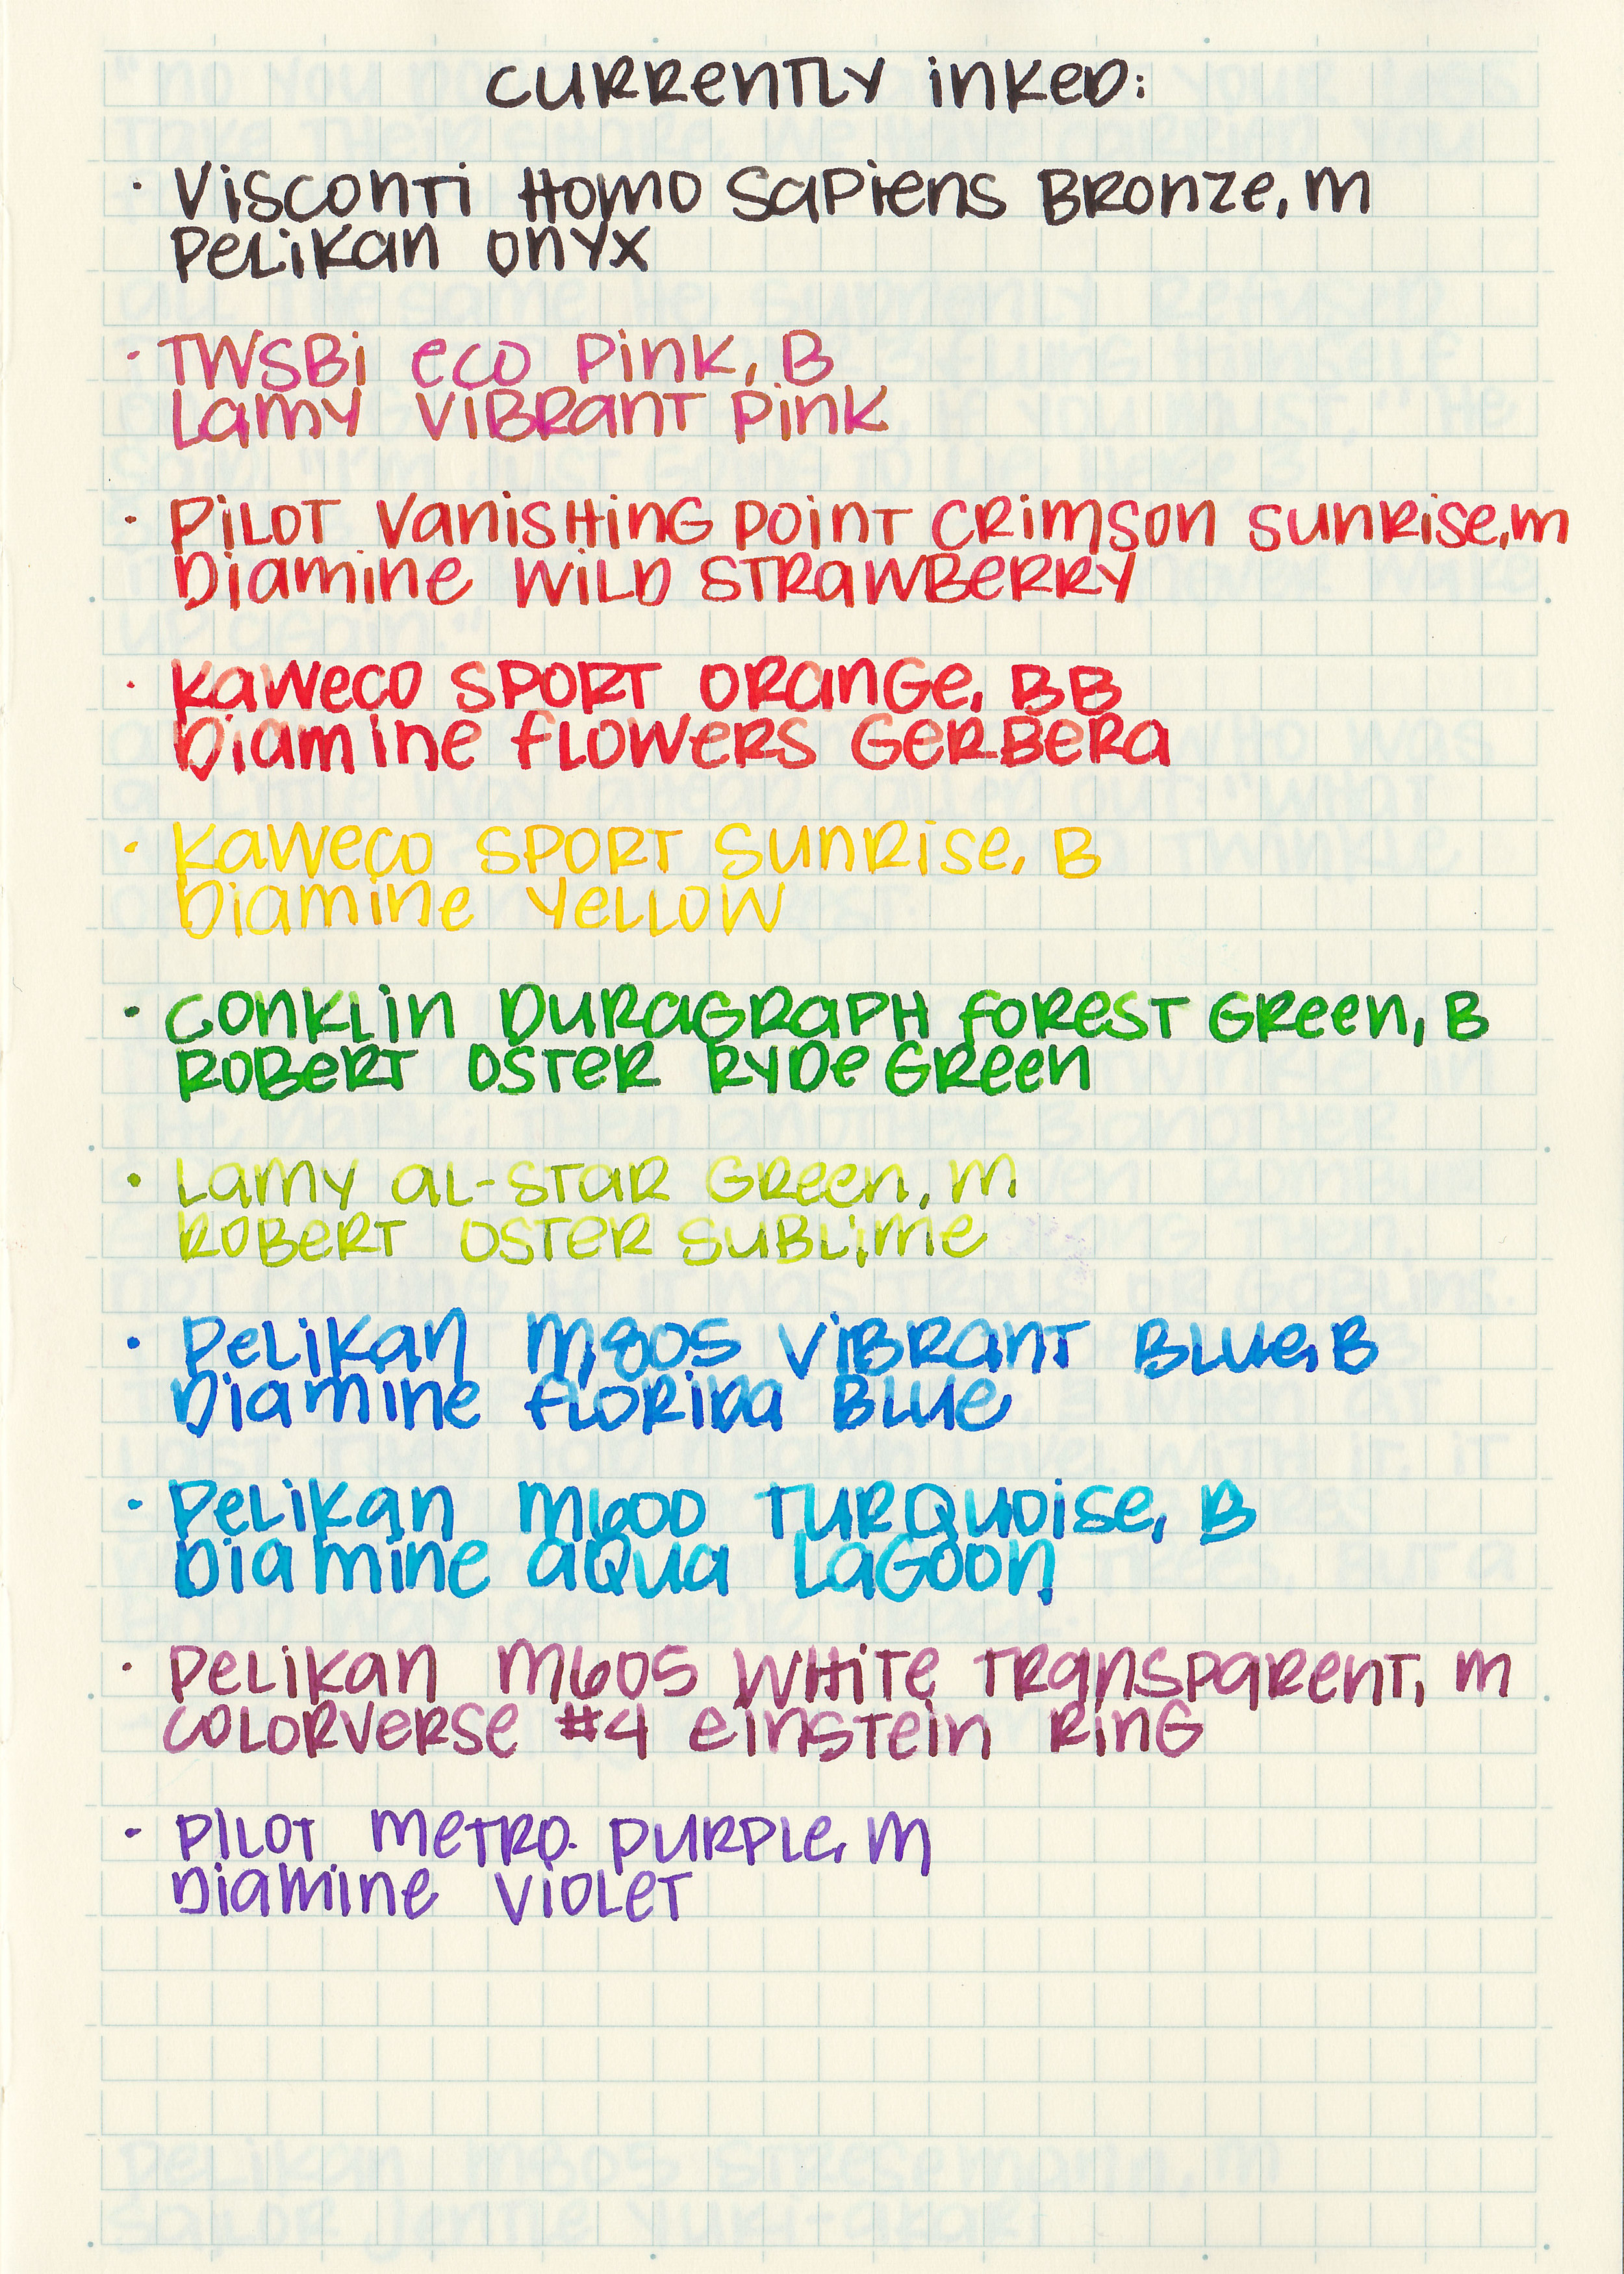 Currently Inked:
· Visconti Homo Sapiens Bronze, M
Pelikan Onyx
· TWSBI Eco Pink, B
Lamy Vibrant Pink
· Pilot Vanishing Point Crimson Sunrise, M
Diamine Wild Strawberry
· Kaweco Sport Orange, BB
Diamine Flowers Gerbera
· Kaweco Sport Sunrise, B
Diamine Yellow
· Conklin Duragraph Forest Green, B
Robert Oster Ryde Green
· Lamy Al-Star Green, M
Robert Oster Sublime
· Pelikan M805 Vibrant Blue, B
Diamine Florida Blue
· Pelikan M600 Turquoise, B
Diamine Aqua Lagoon
· Pelikan M605 White Transparent, M
Colorverse #4 Einstein Ring
· Pilot Metro. Purple, M
Diamine Violet
Pelikan M805 Stresemann, M
Sailor Jentle Yuki-akari